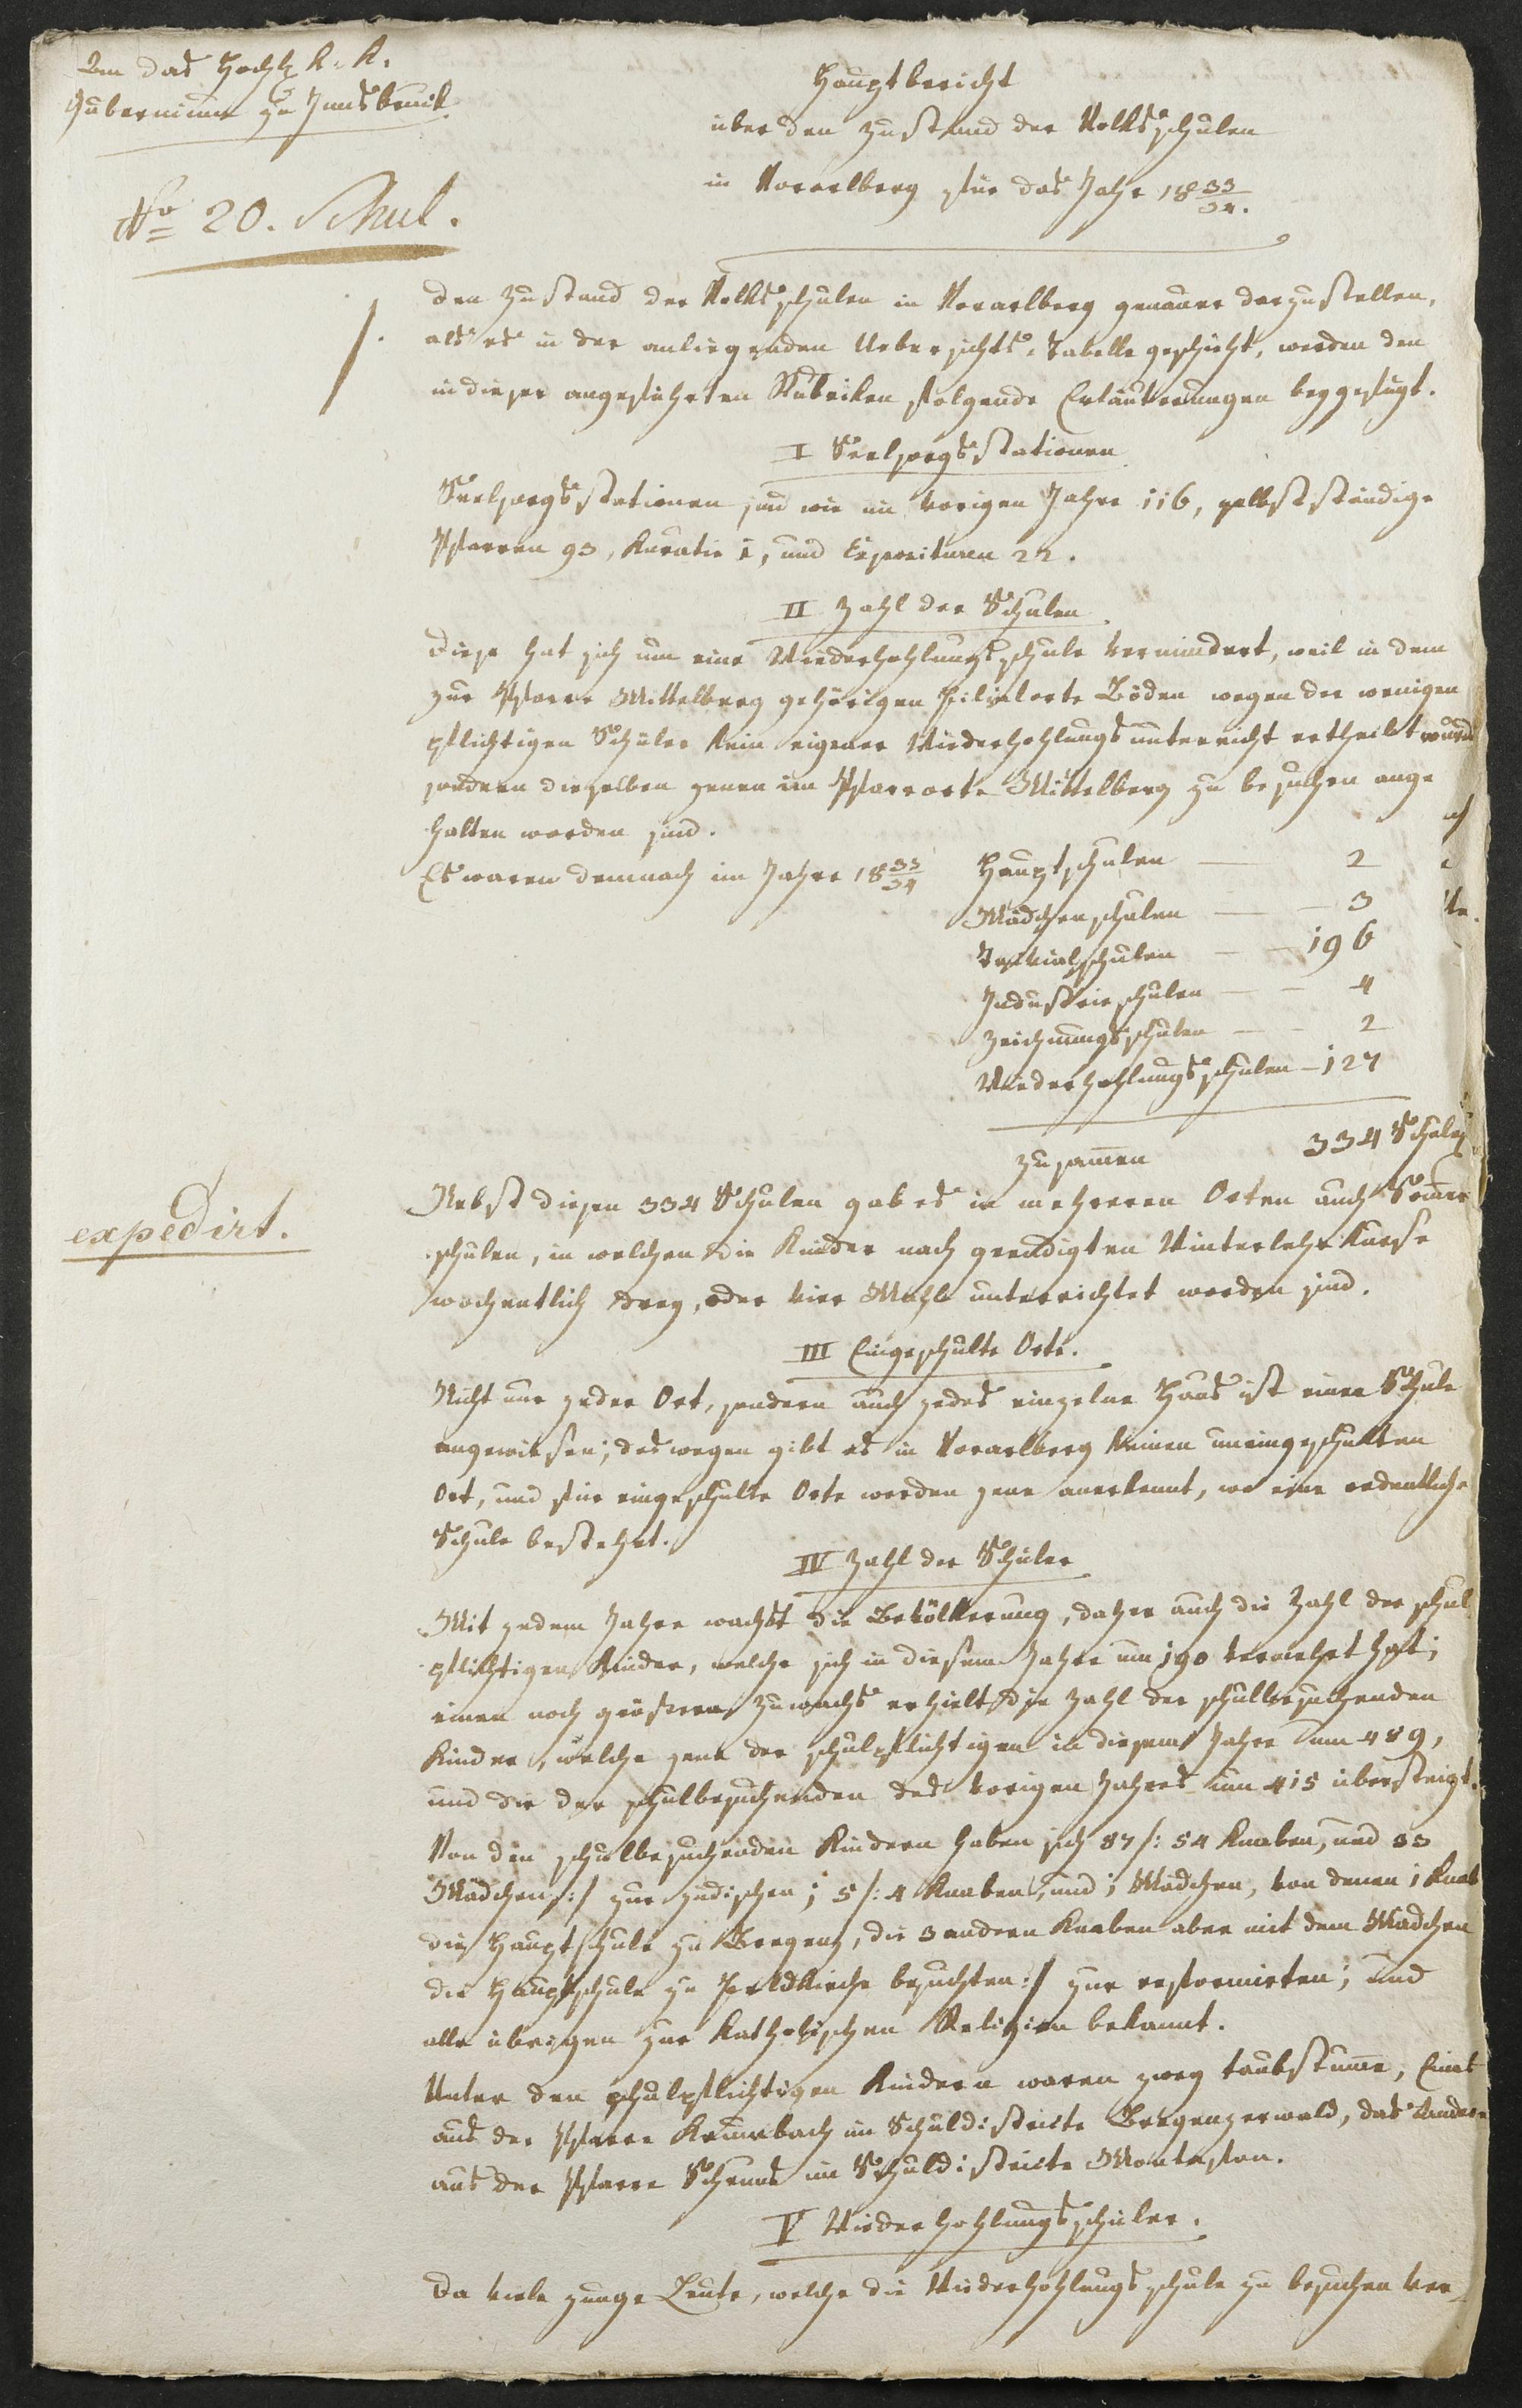 An das Hochl. K. K.
Gubernium zu Innsbruck
No 20. Schul.
expedirt.
Hauptbericht
über den Zustand der Volksschulen
in Vorarlberg für das Jahr 1833/34.
Den Zustand der Volksschulen in Vorarlberg genauer darzustellen,
als es in der anliegenden Uebersichts-Tabelle geschieht, werden den
in dieser angeführten Rubriken folgende Erläuterungen beygefügt.
I Seelsorgsstationen
Seelsorgsstationen sind wie im vorigen Jahre 116, selbstständige
Pfarren 93, Kuratie 1, und Exposituren 22.
II Zahl der Schulen
Diese hat sich um eine Wiederhohlungsschule vermindert, weil in dem
zur Pfarre Mittelberg gehörigen Filialorte Böden wegen der wenigen
pflichtigen Schüler kein eigener Wiederhohlungsunterricht ertheilt wurde
sondern dieselben jenen im Pfarrorte Mittelberg zu besuchen ange
halten worden sind.
Es waren demnach im Jahre 1833/34 Hauptschulen — 2
Mädchenschulen — — 3
Trivialschulen — — 196
Industrieschulen — — 4
Zeichnungsschulen — — 2
Wiederhohlungsschulen — 127
zusammen 334 Schulen
Nebst diesen 334 Schulen gab es in mehreren Orten auch Sommer
schulen, in welchen die Kinder nach geendigten Winterlehrkurse
wochentlich drey, oder vier Mahl unterrichtet worden sind.
III Eingeschulte Orte.
Nicht nur jeder Ort, sondern auch jedes einzelne Haus ist einer Schule
angewiesen; deswegen gibt es in Vorarlberg keinen uneingeschulten
Ort, und für eingeschulte Orte werden jene anerkennt, wo eine ordentliche
Schule bestehet.
IV Zahl der Schüler
Mit jedem Jahre wachst die Bevölkerung, daher auch die Zahl der schul
pflichtigen Kinder, welche sich in diesem Jahre um 190 vermehrt hat;
einen noch größeren Zuwachs erhielt die Zahl der schulbesuchenden
Kinder, welche jene der schulpflichtigen in diesem Jahre um 489,
und die der schulbesuchenden des vorigen Jahres um 415 übersteigt.
Von den schulbesuchenden Kindern haben sich 87 /: 54 Knaben, und 33
Mädchen :/ zur judischen; 5 /: 4 Knaben, und 1 Mädchen, von denen 1 Knab
die Hauptschule zu Bregenz, die 3 andern Knaben aber mit dem Mädchen
die Hauptschule zu Feldkirch besuchten :/ zur reformirten; und
alle übrigen zur katholischen Religion bekannt.
Unter den schulpflichtigen Kindern waren zwey taubstumme, Eines
aus der Pfarre Krumbach im Schuldistricte Bregenzerwald, das Andere
aus der Pfarre Schruns im Schuldistricte Montafon.
V Wiederhohlungsschüler.
Da viele junge Leute, welche die Wiederhohlungsschule zu besuchen ver-